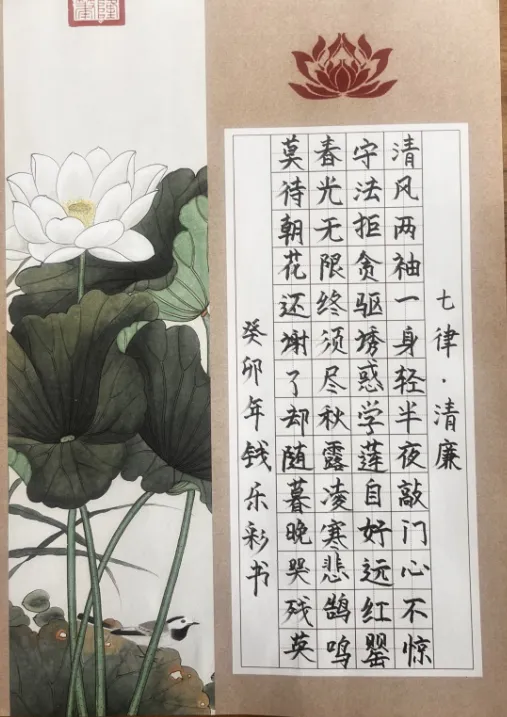 七律·清廉
清风两袖一身轻半夜敲门心不惊
守法拒贪驱诱惑学莲自好远红罂
春光无限终须尽秋露凌寒悲鹄鸣
莫待朝花还谢了却随暮晚哭残英
癸卯年钱乐彩书